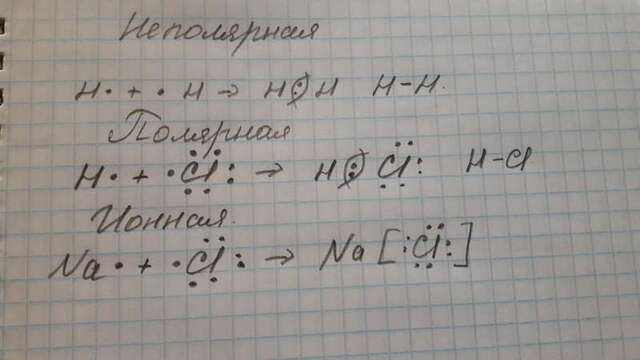 Неполярная
H· + ·H → H:H H–H.
Полярная
H· + ·Cl: → H:Cl: H–Cl
Ионная.
Na· + ·Cl: → Na[:Cl:]